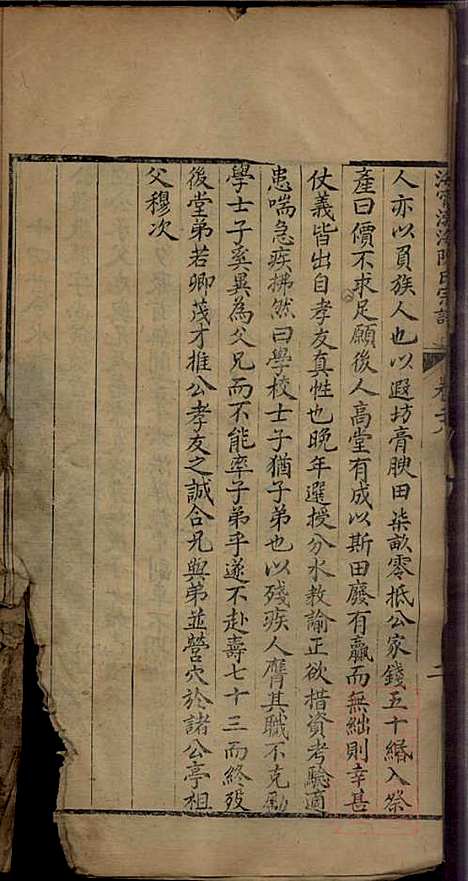 海寧渤海陳氏宗譜 卷二十八 二
人亦以負族人也以遐坊膏腴田柒畝零抵公家錢五十緡入祭
產曰價不求足願後人高堂有成以斯田廢有贏而無絀則幸甚
仗義皆出自孝友真性也晚年選授分水教諭正欲措資考驗適
患喘急疾拂然曰學校士子猶子弟也以殘疾人膺其職不克勵
學士子奚異為父兄而不能率子弟乎遂不赴壽七十三而終歿
後堂弟若卿茂才推公孝友之誠合兄與弟並營穴於諸公亭祖
父穆次